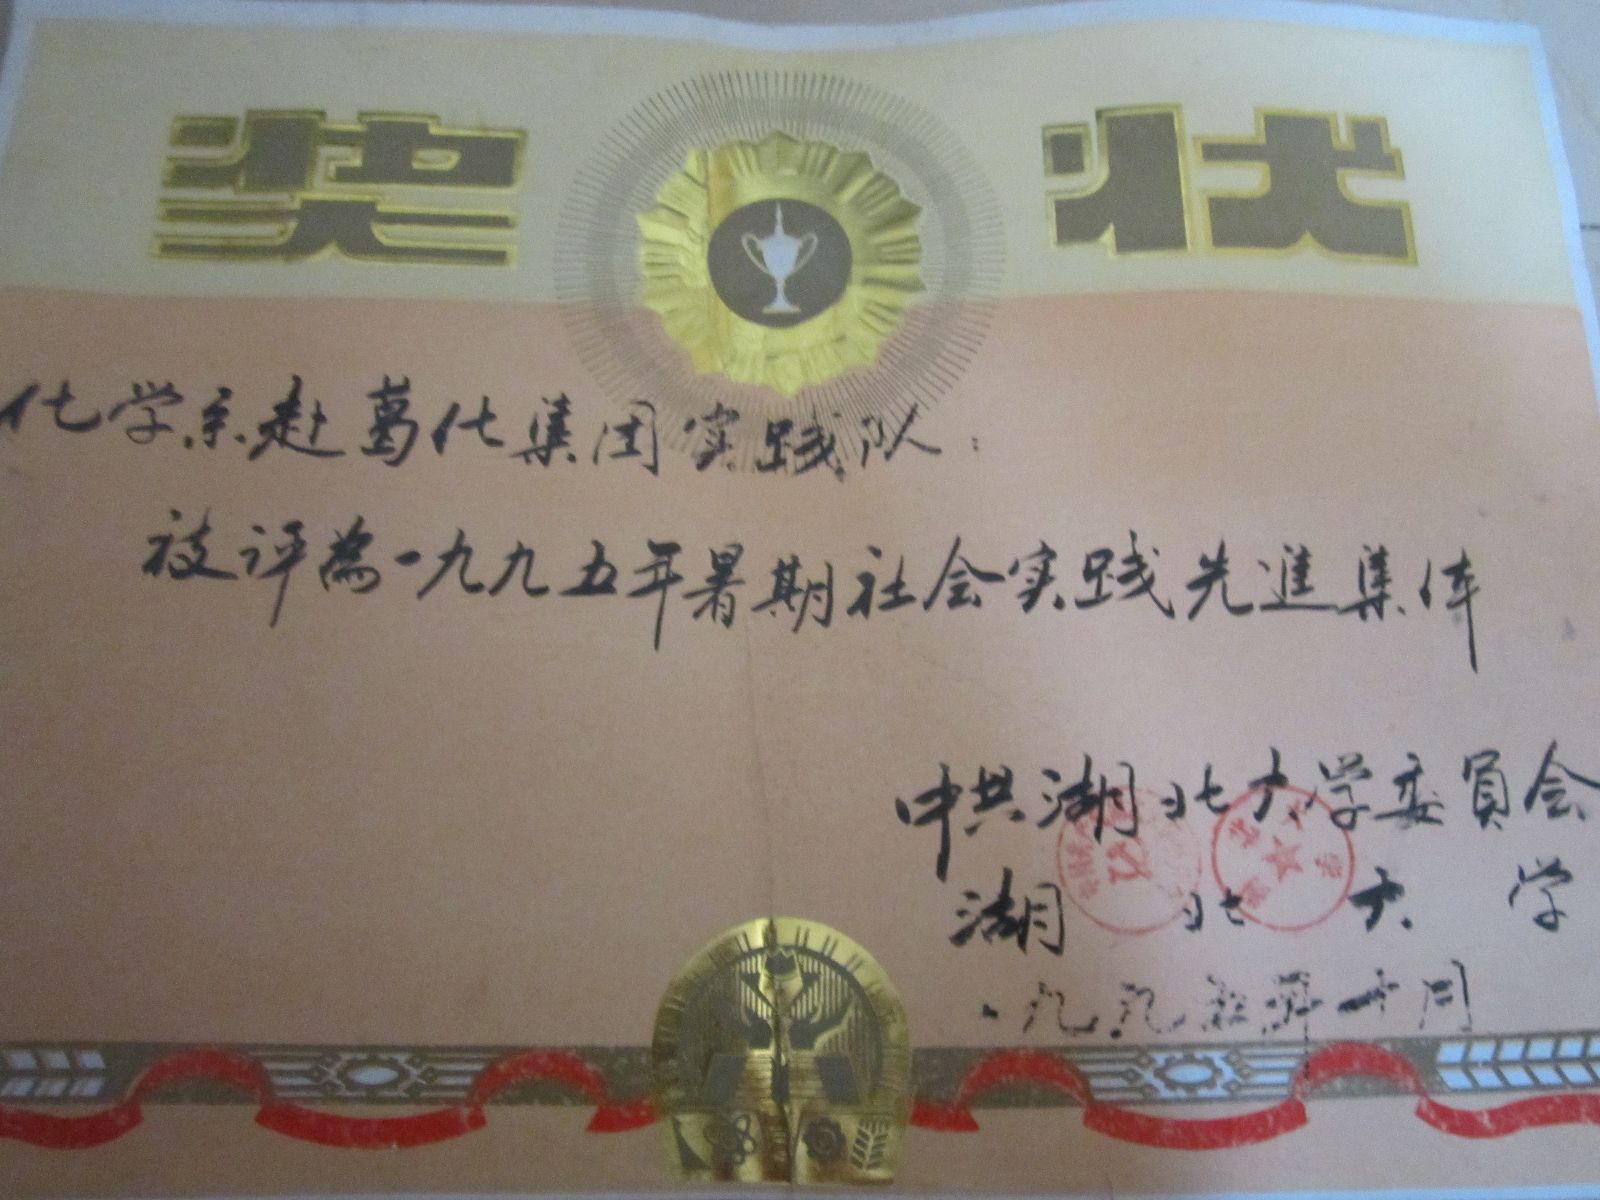 奖状
化学系赴葛化集团实践队：
被评為一九九五年暑期社会实践先進集体
中共湖北大学委員会
湖北大学
一九九五年十月